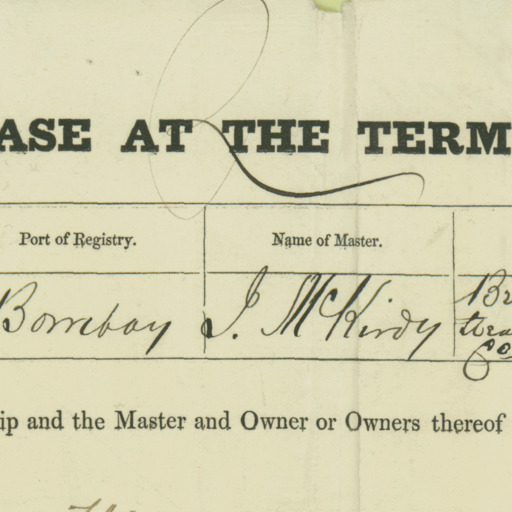 ASE AT THE TERM
Port of Registry. Name of Master.
Bombay J. McKirdy
ip and the Master and Owner or Owners thereof